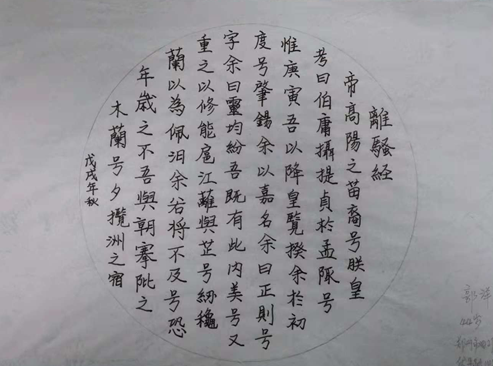 離騷經
帝高陽之苗裔号朕皇
考曰伯庸攝提貞於孟陬号
惟庚寅吾以降皇覽揆余於初
度号肇錫余以嘉名余曰正則号
字余曰靈均紛吾既有此内美号又
重之以修能扈江蘺與芷号紉穐
蘭以為佩汩余若将不及号恐
年歲之不吾與朝搴阰之
木蘭号夕攬洲之宿
戊戌年秋